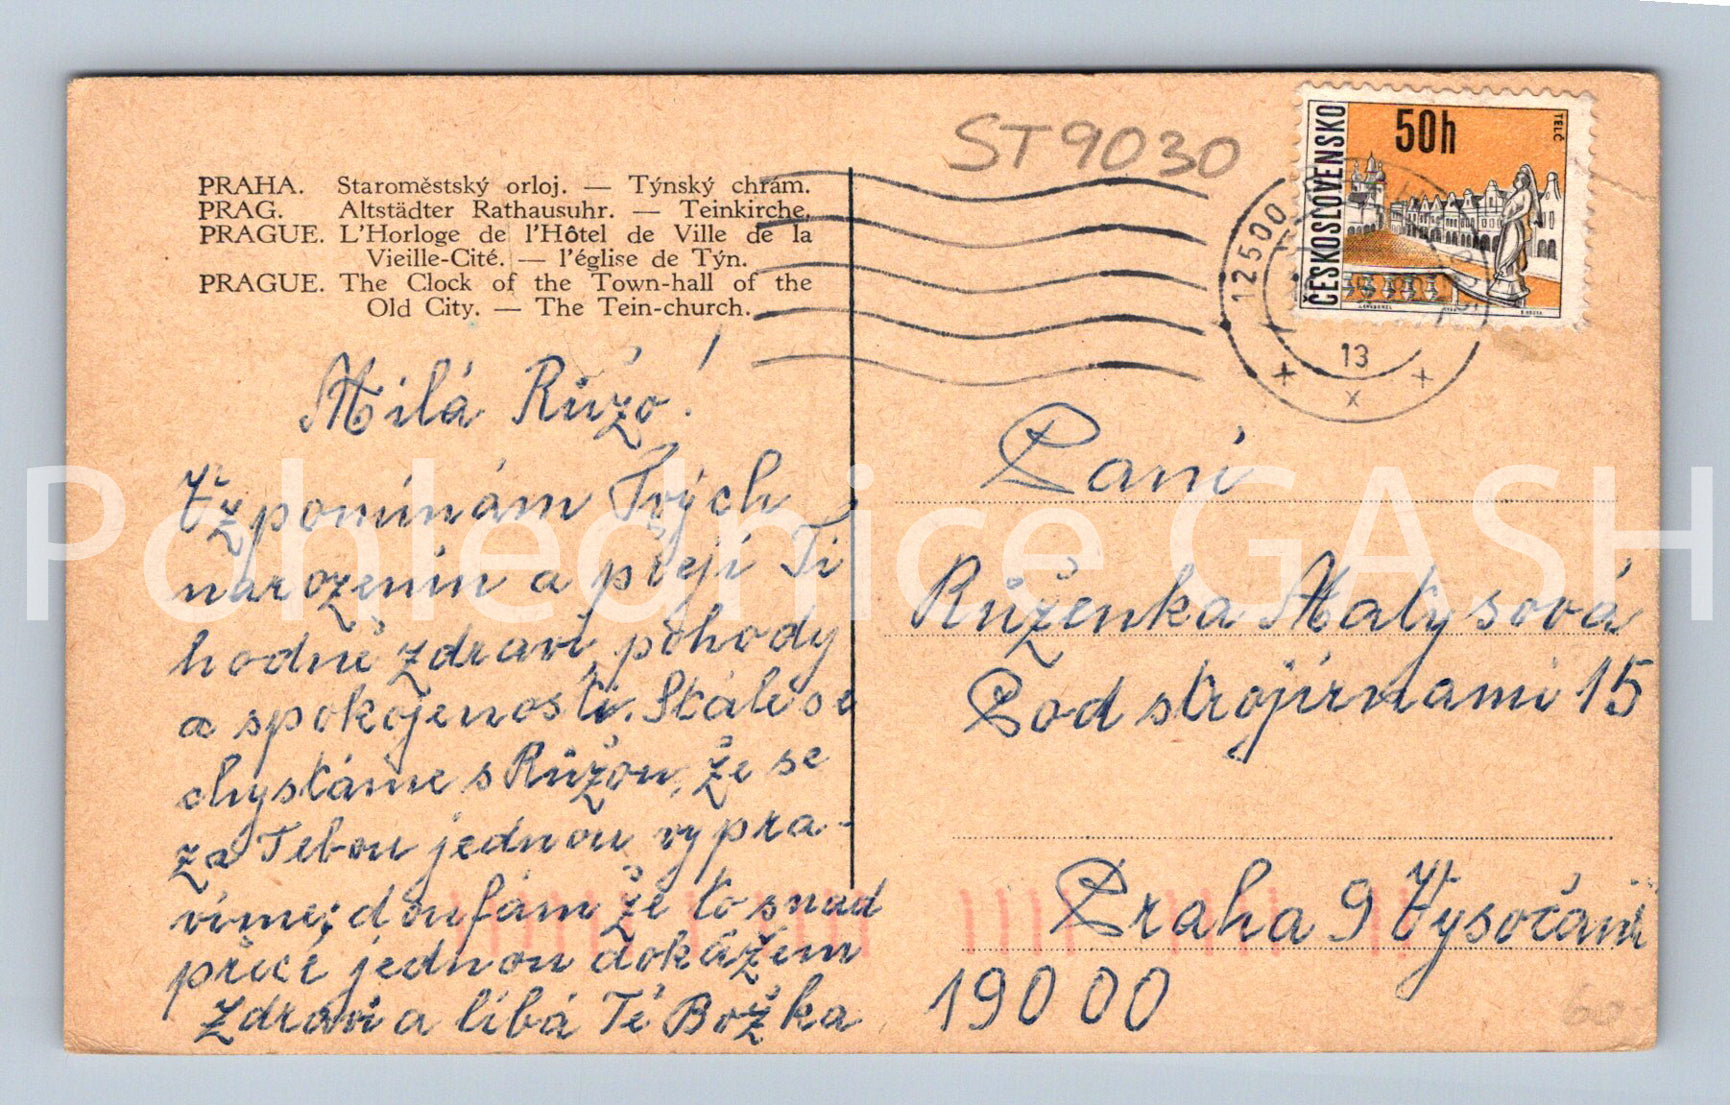 ST9030
ČESKOSLOVENSKO
50h
TELČ
12500
13
PRAHA. Staroměstský orloj. — Týnský chrám.
PRAG. Altstädter Rathausuhr. — Teinkirche.
PRAGUE. L'Horloge de l'Hôtel de Ville de la
Vieille-Cité. — l'église de Týn.
PRAGUE. The Clock of the Town-hall of the
Old City. — The Tein-church.
Milá Růžo!
Vzpomínám Tvých
narozenin a přeji Ti
hodně zdraví pohody
a spokojenosti. Stále se
chystáme s Růžou, že se
za Tebou jednou vypra-
víme; doufám že to snad
přece jednou dokážem
Zdraví a líbá Tě Božka
Paní
Růženka Malysová
Pod strojírnami 15
Praha 9 Vysočany
19000
60
Pohlednice GASH